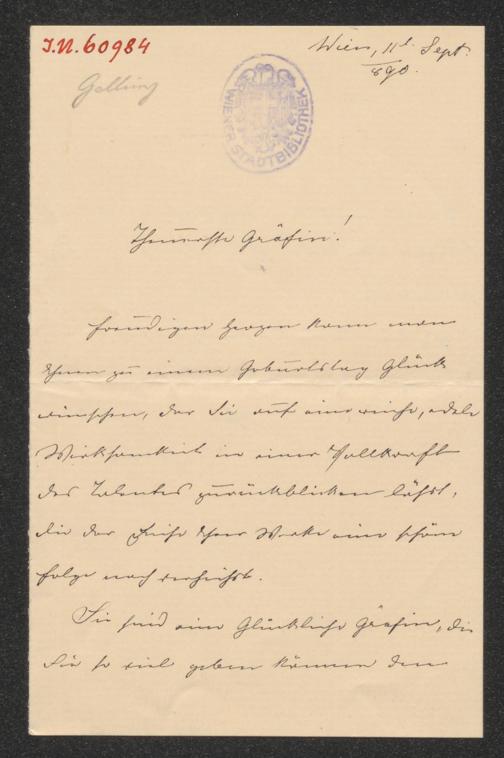 J.N. 60984
Wien, 11t Sept.
890.
WIENER STADTBIBLIOTHEK
Theuerste Gräfin!
Freudigen Herzens kann man
Ihnen zu einem Geburtstag Glück
wünschen, der Sie auf eine reiche, edele
Wirksamkeit in einer Vollkraft
des Talentes zurückblicken läßt,
die der Reihe Ihrer Werke eine schöne
Folge noch verheißt.
Sie sind eine Glückliche Gräfin, die
Sie so viel geben können den